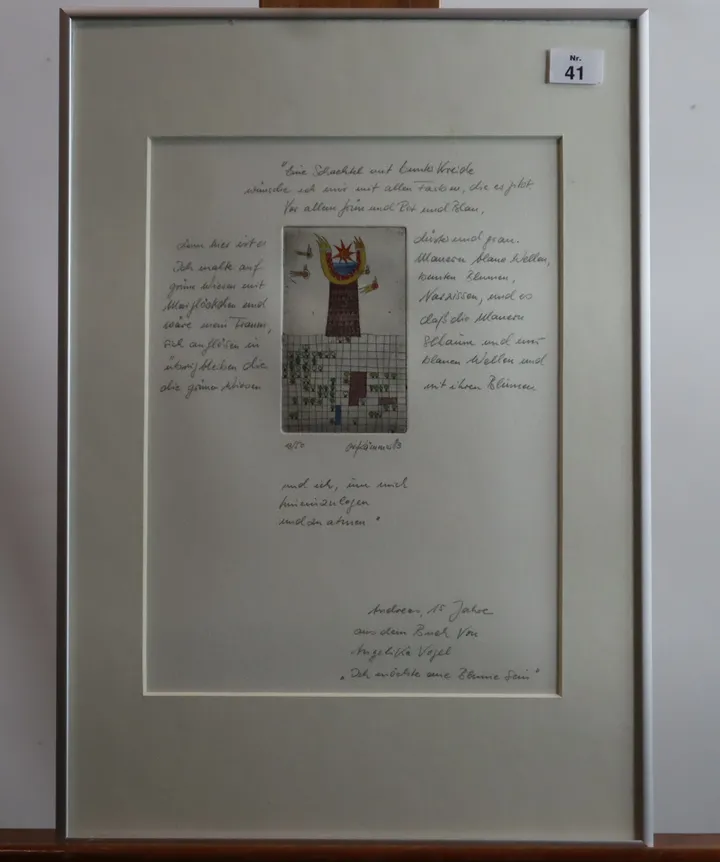 Nr.
41
"Eine Schachtel mit bunter Kreide
wünsche ich mir mit allen Farben, die es gibt
Vor allem grün und Rot und Blau,
denn hier ist es düster und grau.
Ich malte auf Mauern blaue Wellen,
grüne Wiesen mit bunten Blumen,
Maiglöckchen und Narzissen, und es
wäre mein Traum, daß die Mauern
sich auflösen in Schaum und nur
übrig bleiben die blauen Wellen und
die grünen Wiesen mit ihren Blumen
und ich, um mich
hineinzulegen
und zu atmen"
Andreas, 15 Jahre
aus dem Buch von
Angelika Vogel
"Ich möchte eine Blume sein"